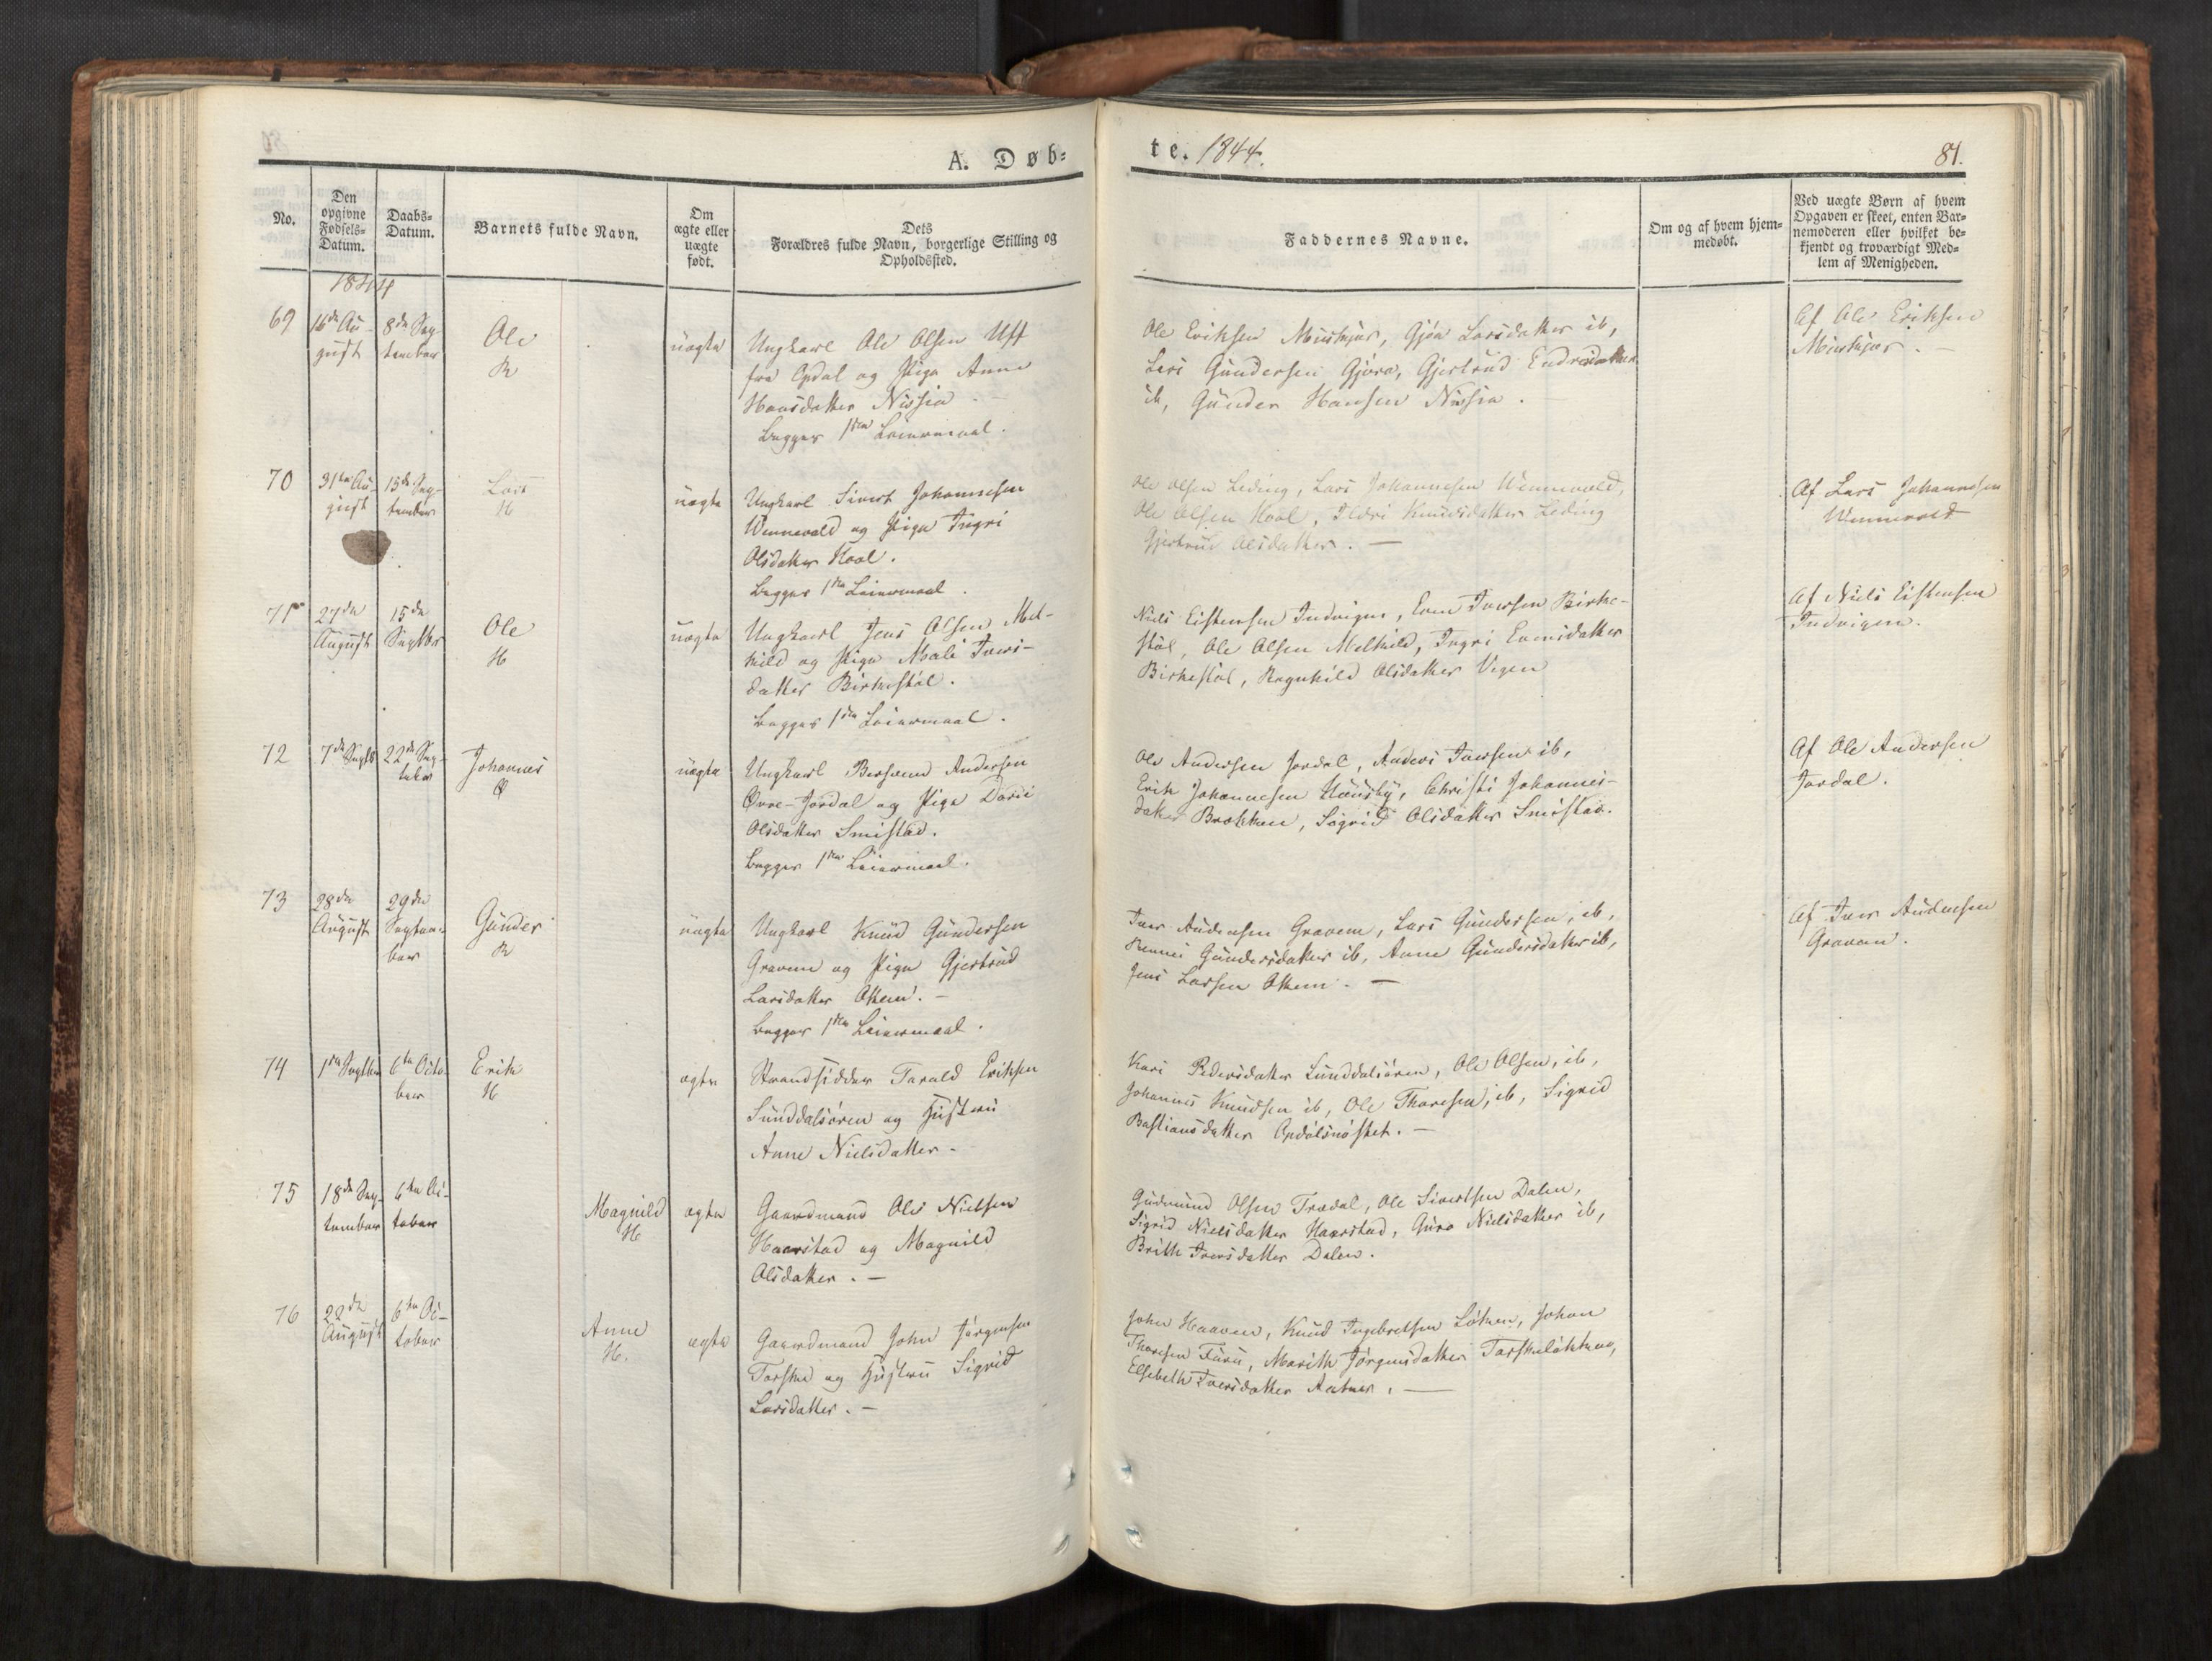 A. Døb=
te. 1844.
81.
No.
Den
opgivne
Fødsels=
Datum.
Daabs=
Datum.
Barnets fulde Navn.
Om
ægte eller
uægte
født.
Dets
Forældres fulde Navn, borgerlige Stilling og
Opholdssted.
Faddernes Navne.
Om og af hvem hjem=
medøbt.
Ved uægte Børn af hvem
Opgaven er skeet, enten Bar=
nemoderen eller hvilket be=
kjendt og troværdigt Med=
lem af Menigheden.
1844
69
16de Au-
gust
8de Sep-
tember
Ole
R
uægte
Ungkarl Ole Olsen
fra Opdal og Pige Anne
Hansdatter Nisja
Begges 1ste Leiermaal.
Ole Eriksen Muskjør, Gjøa Larsdatter ib,
Lars Gundersen Gjøra, Gjertrud Endresdatter
ib, Gunder Hansen Nisja.
Af Ole Eriksen
Muskjør. -
70
31te Au-
gust
15de Sep-
tember
Lars
H
uægte
Ungkarl Sivert Johannesen
Wennevold og Pige Ingri
Olsdatter Hool.
Begges 1ste Leiermaal.
Ole Olsen Leding, Lars Johannesen Wennevold,
Ole Olsen Hool, Ildri Knudsdatter Leding
Gjertrud Olsdatter. —
Af Lars Johannesen
Wennevold
71
27de
August
15de
Septbr
Ole
H
uægte
Ungkarl Jens Olsen Mel-
kild og Pige Mali Ivers-
datter Birkestøl.
Begges 1ste Leiermaal.
Niels Eistensen Indvigen, Even Iversen Birke-
støl, Ole Olsen Melkild, Ingri Evensdatter
Birkestøl, Ragnhild Olsdatter Vegen
Af Niels Eistensen
Indvigen.
72
7de Septb
22de Sep-
tebr
Johannes
Ø
uægte
Ungkarl Andersen
Øvre-Jordal og Pige Dordi
Olsdatter Smistad.
Begges 1ste Leiermaal.
Ole Andersen Jordal, Anders Iversen ib,
Erik Johannesen Huusby, Christi Johannes-
datter Brækken, Sigrid Olsdatter Smistad.
Af Ole Andersen
Jordal.
73
28de
August
29de
Septem-
ber
Gunder
R
uægte
Ungkarl Knud Gundersen
Gravem og Pige Gjertrud
Larsdatter Ottem. -
Begges 1ste Leiermaal.
Iver Audensen Gravem, Lars Gundersen, ib,
Gundersdatter ib, Anne Gundersdatter ib,
Jens Larsen Ottem. —
Af Iver Audensen
Gravem.
74
1ste Septbr
6te Octo-
ber
Erik
H
ægte
Strandsidder Tarald Eriksen
Sunddalsøren og Hustru
Anne Nielsdatter -
Kari Pedersdatter Sunddalsøren, Ole Olsen, ib,
Johannes Knudsen ib, Ole Thoresen, ib, Sigrid
Bastiansdatter Opdølsnøstet. —
75
18de Sep-
tember
6te Oc-
tober
Magnild
H
ægte
Gaardmand Ole Nielsen
Haarstad og Magnild
Olsdatter. —
Gudmund Olsen Trædal, Ole Sivertsen Dalen,
Sigrid Nielsdatter Haarstad, Guro Nielsdatter ib,
Brith Iversdatter Dalen.
76
22de
August
6te Oc-
tober
Anne
H.
ægte
Gaardmand John Jørgensen
Torske og Hustru Sigrid
Larsdatter. —
John Haaven, Knud Ingebretsen Løken, Johan
Thoresen Furu, Marith Jørgensdatter Torskeløkken,
Elsebeth Iversdatter. —